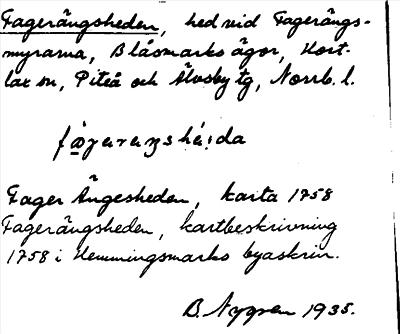 Fagerängsheden, hed vid Fagerängs-
myrarna, Blåsmarks ägor, Hort-
lax sn, Piteå och Älvsby tg, Norrb. l.
Fager Ängesheden, karta 1758
Fagerängsheden, kartbeskrivning
1758 i Hemmingsmarks byaskrin.
B. Nygren 1935.